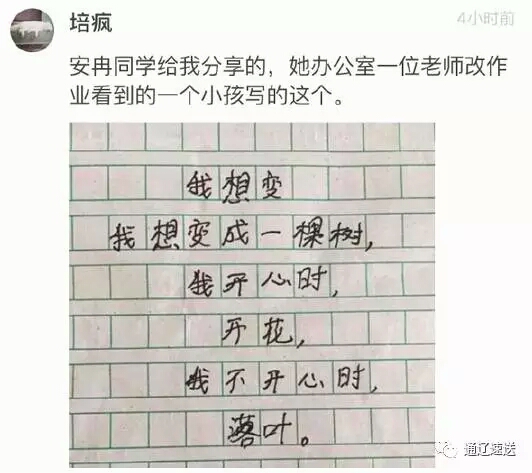 培疯
4小时前
安冉同学给我分享的，她办公室一位老师改作
业看到的一个小孩写的这个。
我想变
我想变成一棵树，
我开心时，
开花，
我不开心时，
落叶。
通辽速送